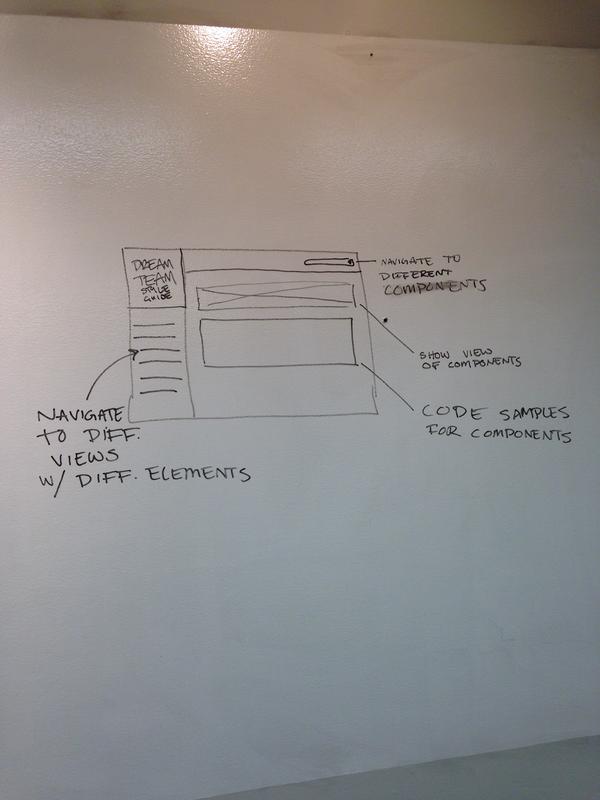 DREAM
TEAM
STYLE
GUIDE
NAVIGATE TO
DIFFERENT
COMPONENTS
SHOW VIEW
OF COMPONENTS
CODE SAMPLES
FOR COMPONENTS
NAVIGATE
TO DIFF.
VIEWS
W/ DIFF. ELEMENTS